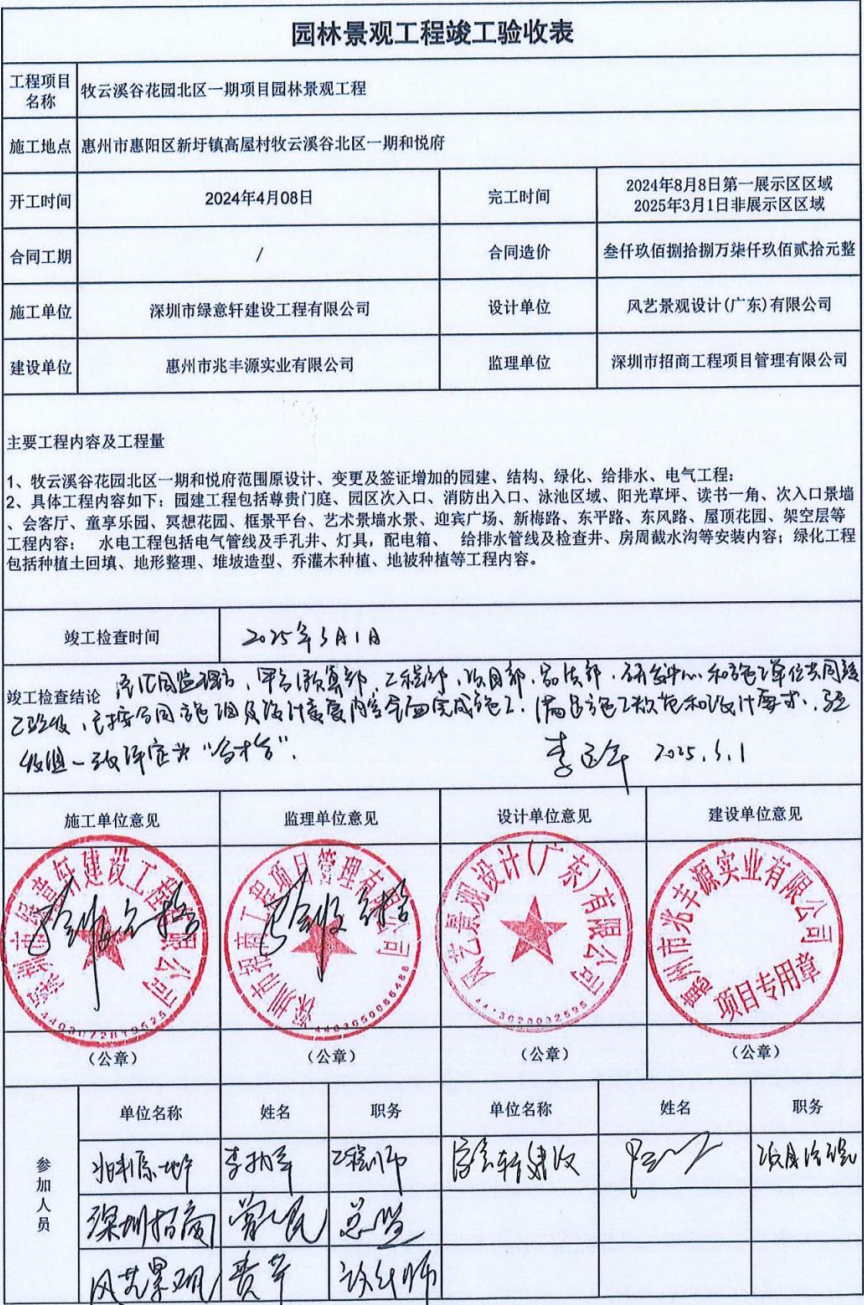 园林景观工程竣工验收表
工程项目名称 牧云溪谷花园北区一期项目园林景观工程
施工地点 惠州市惠阳区新圩镇高屋村牧云溪谷北区一期和悦府
开工时间 2024年4月08日 完工时间 2024年8月8日第一展示区区域
2025年3月1日非展示区区域
合同工期 / 合同造价 叁仟玖佰捌拾捌万柒仟玖佰贰拾元整
施工单位 深圳市绿意轩建设工程有限公司 设计单位 风艺景观设计(广东)有限公司
建设单位 惠州市兆丰源实业有限公司 监理单位 深圳市招商工程项目管理有限公司
主要工程内容及工程量
1、牧云溪谷花园北区一期和悦府范围原设计、变更及签证增加的园建、结构、绿化、给排水、电气工程;
2、具体工程内容如下：园建工程包括尊贵门庭、园区次入口、消防出入口、泳池区域、阳光草坪、读书一角、次入口景墙
、会客厅、童享乐园、冥想花园、框景平台、艺术景墙水景、迎宾广场、新梅路、东平路、东风路、屋顶花园、架空层等
工程内容： 水电工程包括电气管线及手孔井、灯具，配电箱、 给排水管线及检查井、房周截水沟等安装内容；绿化工程
包括种植土回填、地形整理、堆坡造型、乔灌木种植、地被种植等工程内容。
竣工检查时间 2025年3月1日
竣工检查结论 监理 、预算部、工程部、项目部、 研发中心和施工单位共同竣
工验收，已按合同施工图及设计变更内容全面完成施工，满足施工规范和设计要求，验
收组一致评定为“合格”。
2025.3.1
施工单位意见 监理单位意见 设计单位意见 建设单位意见
深圳市绿意轩建设工程有限公司
验收合格
4403072019525
深圳市招商工程项目管理有限公司
验收合格
4403050086488
风艺景观设计(广东)有限公司
惠州市兆丰源实业有限公司
项目专用章
（公章） （公章） （公章） （公章）
参加人员
单位名称 姓名 职务 单位名称 姓名 职务
工程师
深圳招商 总监
风艺景观 设计师